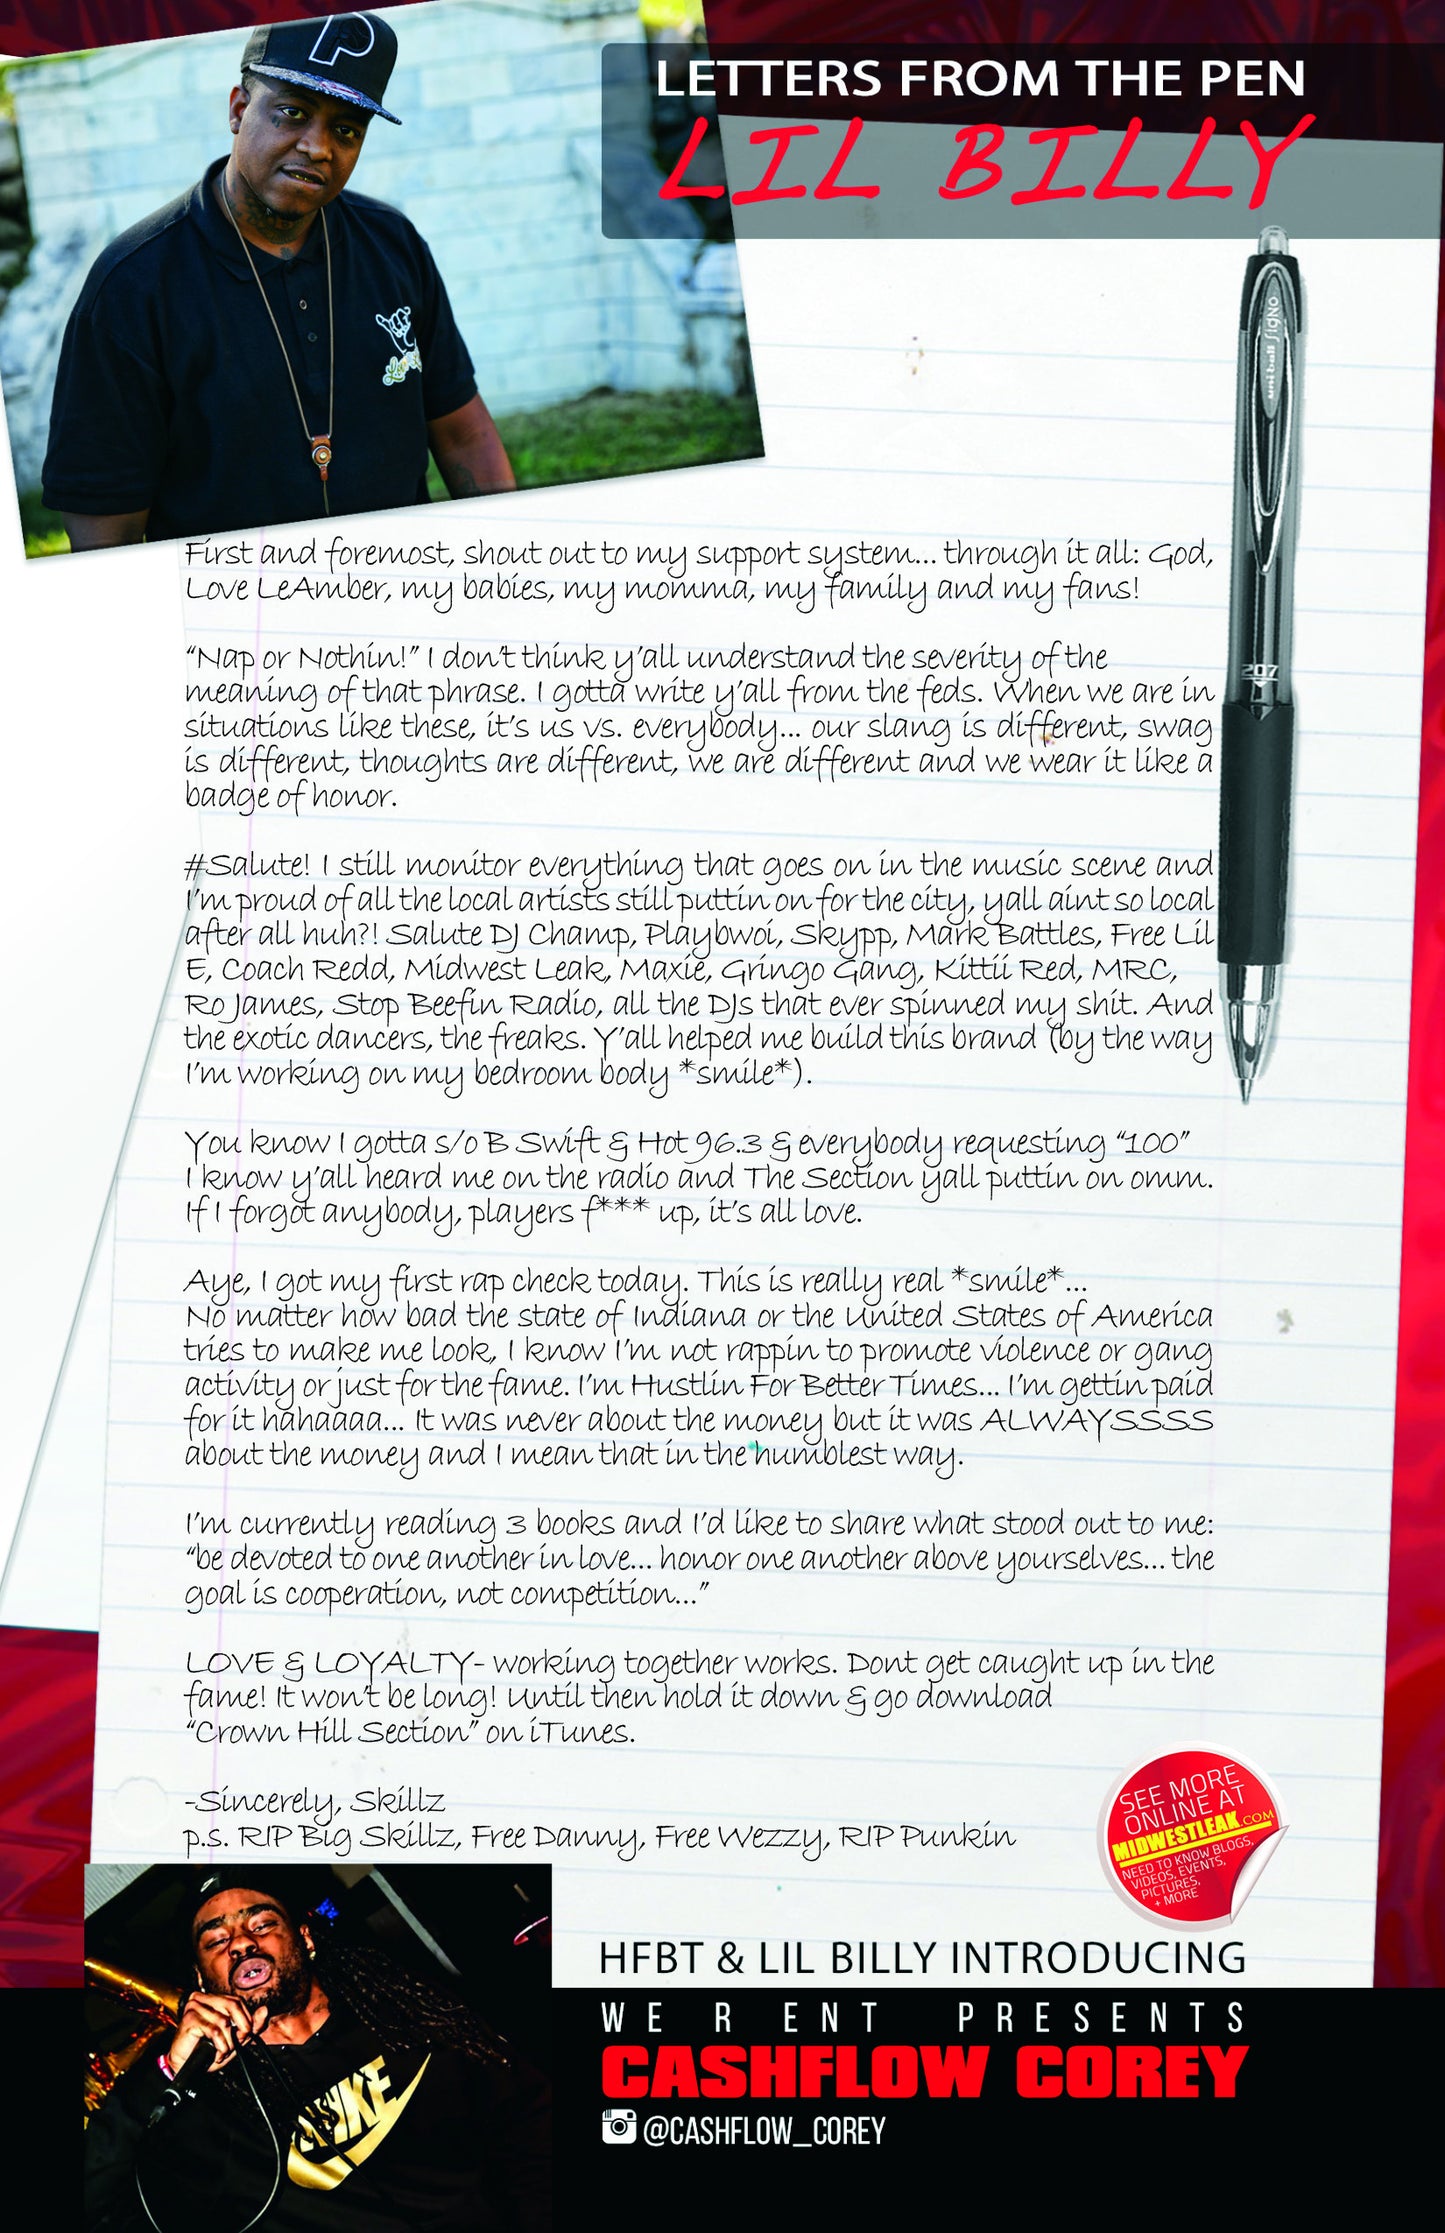 P
LETTERS FROM THE PEN
LIL BILLY
uniball Signo
207
First and foremost, shout out to my support system... through it all: God,
Love LeAmber, my babies, my momma, my family and my fans!
“Nap or Nothin!” I don’t think y’all understand the severity of the
meaning of that phrase. I gotta write y’all from the feds. When we are in
situations like these, it’s us vs. everybody... our slang is different, swag
is different, thoughts are different, we are different and we wear it like a
badge of honor.
#Salute! I still monitor everything that goes on in the music scene and
I’m proud of all the local artists still puttin on for the city, yall aint so local
after all huh?! Salute DJ Champ, Playbwoi, Skypp, Mark Battles, Free Lil
E, Coach Redd, Midwest Leak, Maxie, Gringo Gang, Kittii Red, MRC,
Ro James, Stop Beefin Radio, all the DJs that ever spinned my shit. And
the exotic dancers, the freaks. Y’all helped me build this brand (by the way
I’m working on my bedroom body *smile*).
You know I gotta s/o B Swift & Hot 96.3 & everybody requesting “100”
I know y’all heard me on the radio and The Section yall puttin on omm.
If I forgot anybody, players f*** up, it’s all love.
Aye, I got my first rap check today. This is really real *smile*...
No matter how bad the state of Indiana or the United States of America
tries to make me look, I know I’m not rappin to promote violence or gang
activity or just for the fame. I’m Hustlin For Better Times... I’m gettin paid
for it hahaaaa... It was never about the money but it was ALWAYSSSS
about the money and I mean that in the humblest way.
I’m currently reading 3 books and I’d like to share what stood out to me:
“be devoted to one another in love... honor one another above yourselves... the
goal is cooperation, not competition...”
LOVE & LOYALTY- working together works. Dont get caught up in the
fame! It won’t be long! Until then hold it down & go download
“Crown Hill Section” on iTunes.
-Sincerely, Skillz
p.s. RIP Big Skillz, Free Danny, Free Wezzy, RIP Punkin
SEE MORE
ONLINE AT
MIDWESTLEAK.COM
NEED TO KNOW BLOGS,
VIDEOS, EVENTS,
PICTURES,
+ MORE
HFBT & LIL BILLY INTRODUCING
WE R ENT PRESENTS
CASHFLOW COREY
@CASHFLOW_COREY